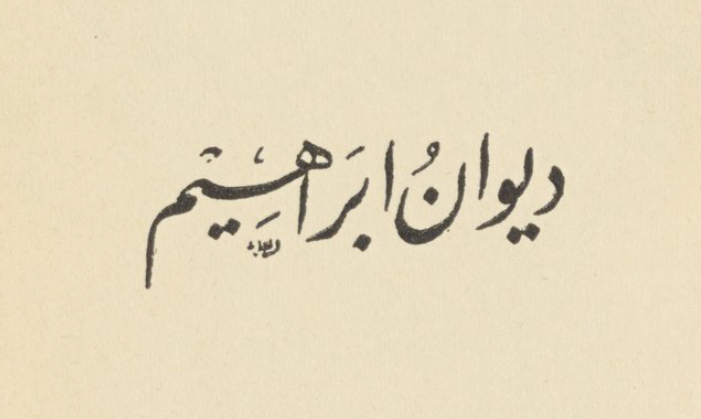 ديوانُ ابرَاهِيم